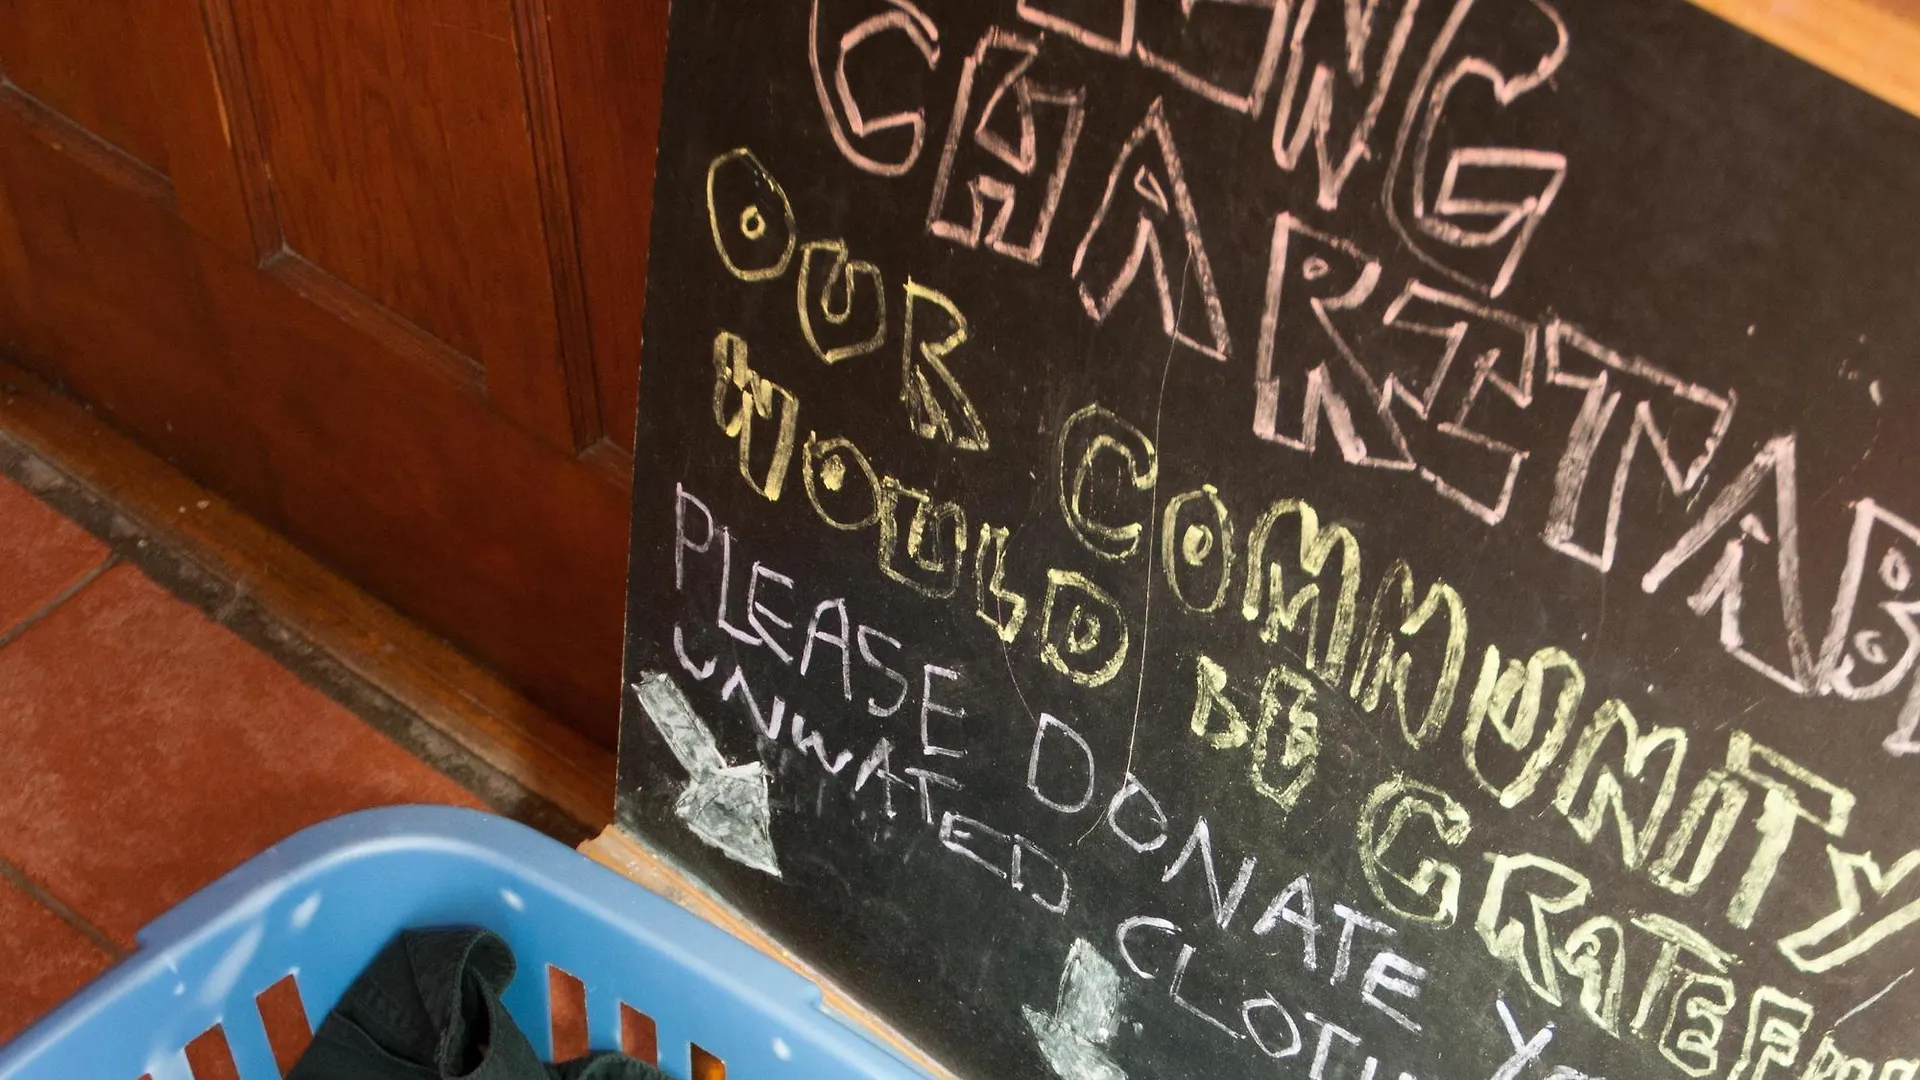 ING
CHARITAB
OUR COMMUNITY
WOULD BE GRATEF
PLEASE DONATE YO
UNWATED CLOTH